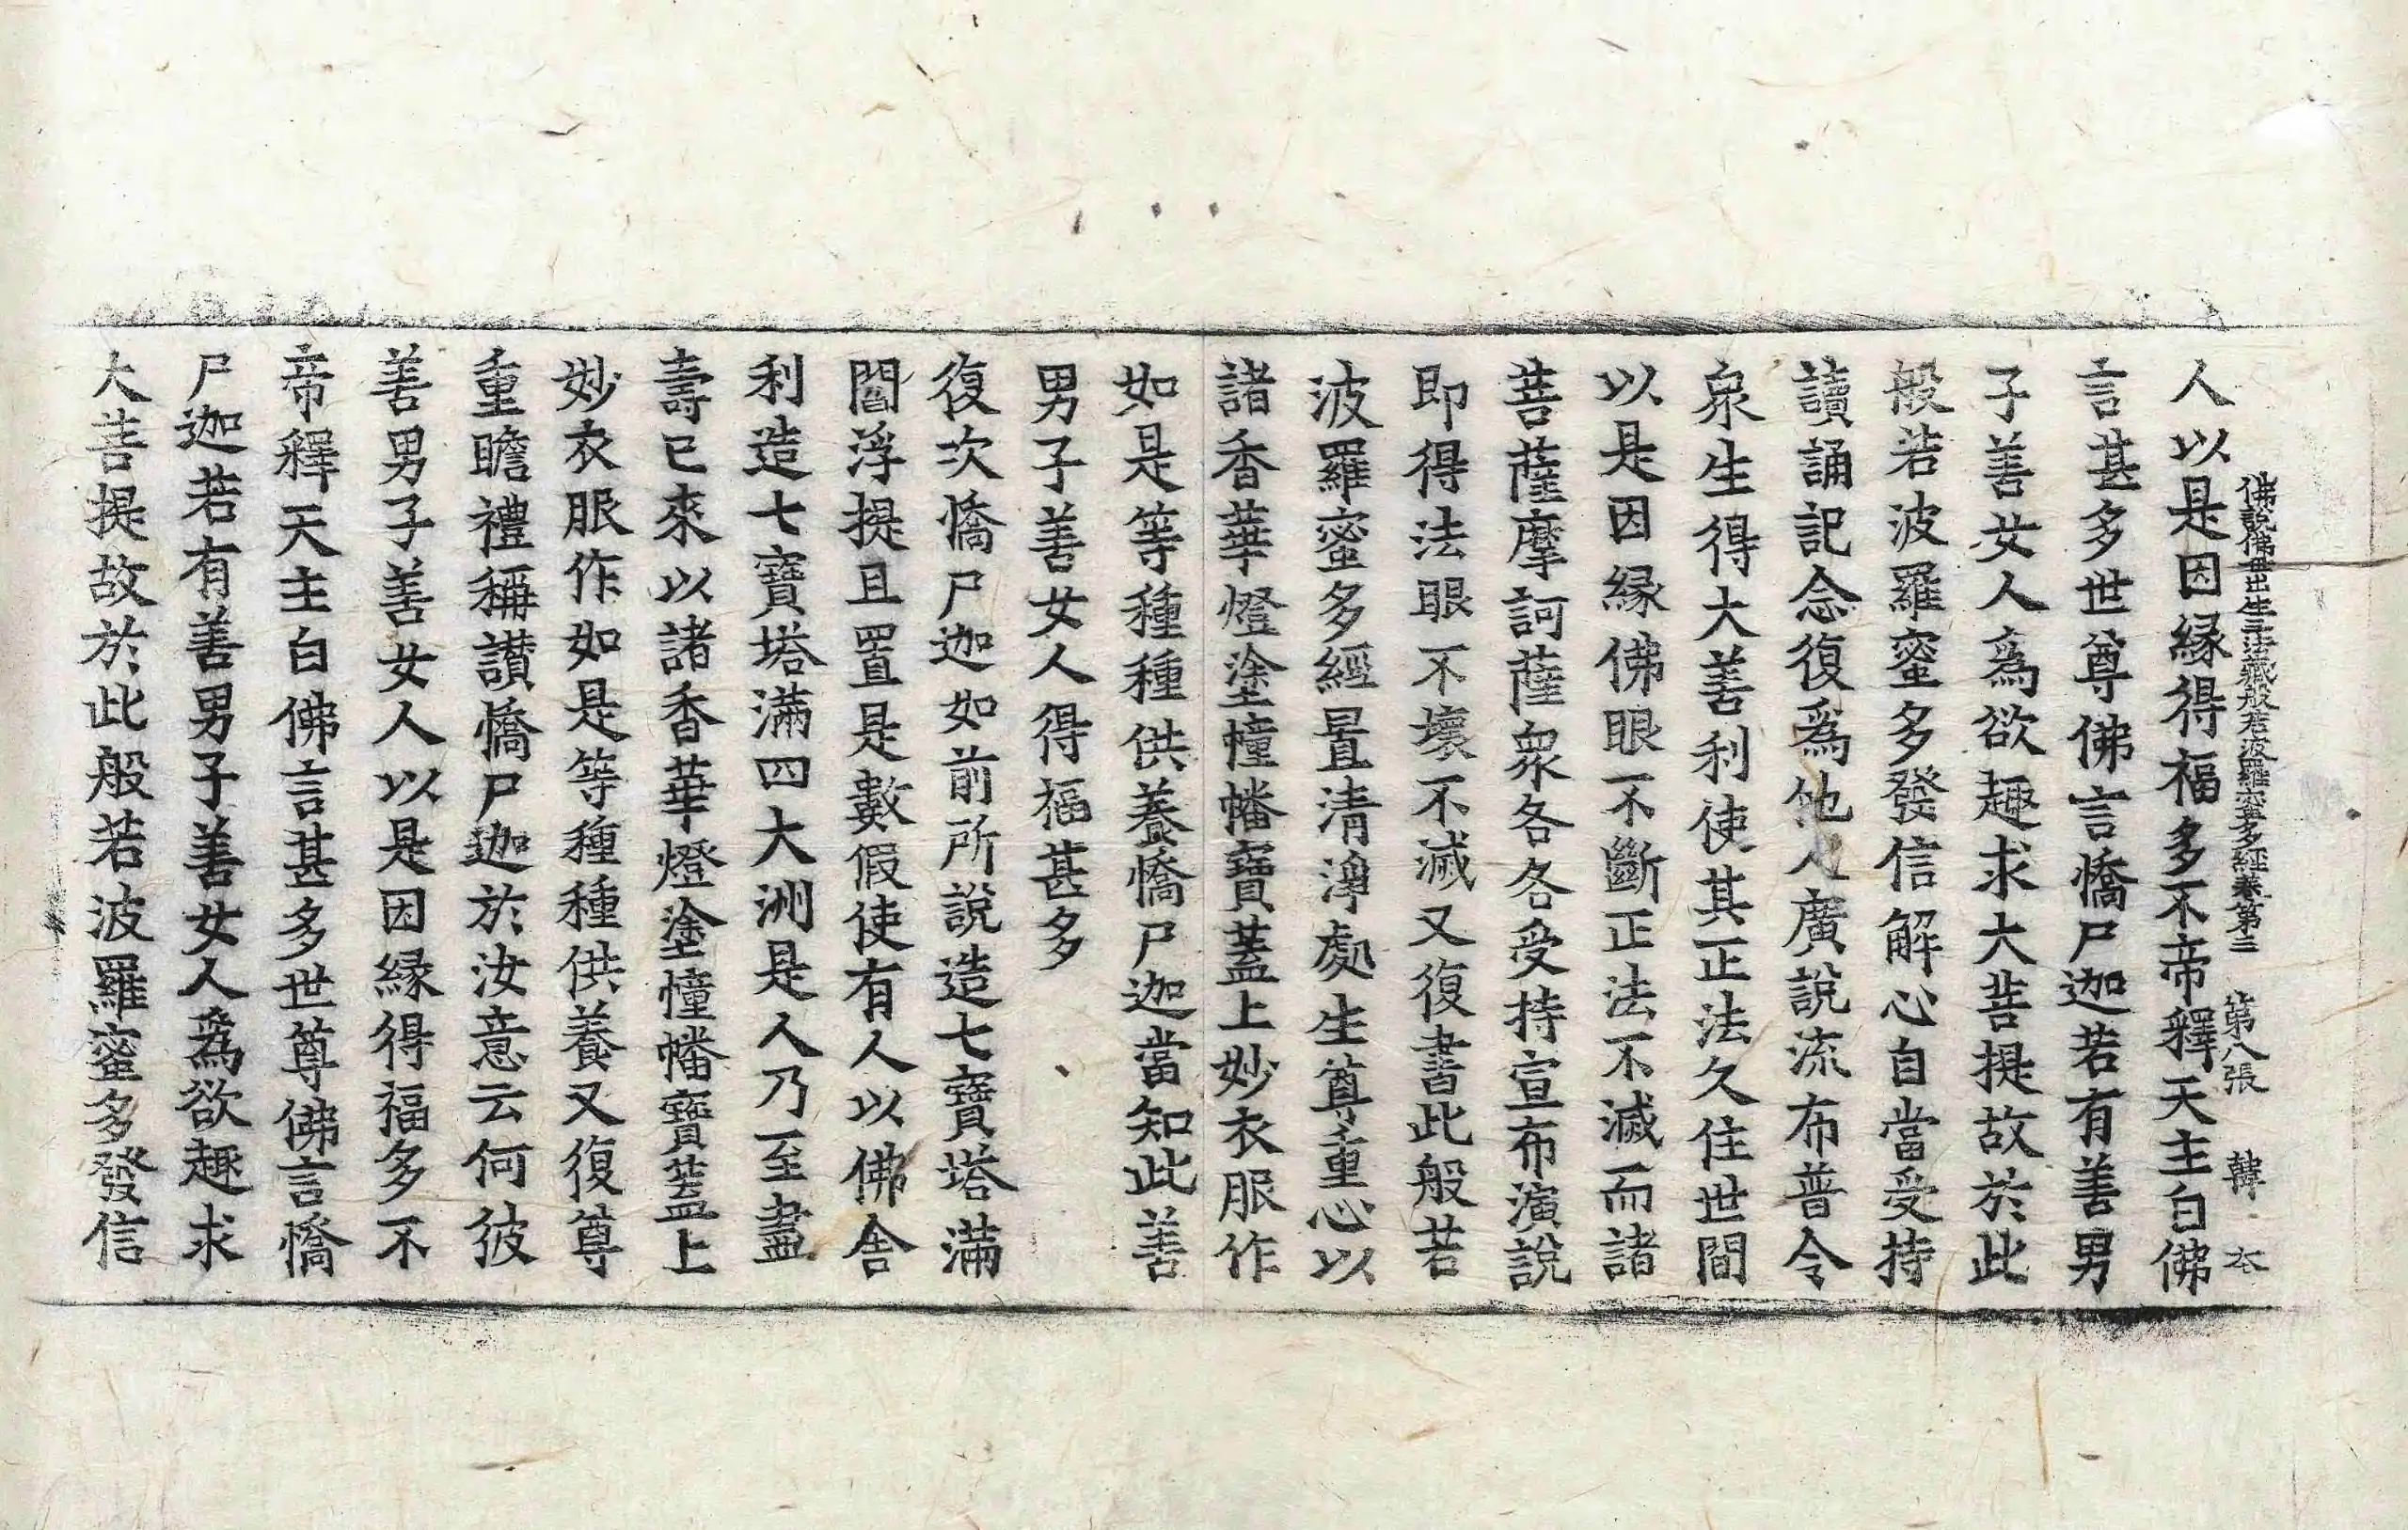 佛說佛母出生三法藏般若波羅蜜多經卷第三 第八張 韓
人以是因緣得福多不帝釋天主白佛
言甚多世尊佛言憍尸迦若有善男
子善女人爲欲趣求大菩提故於此
般若波羅蜜多發信解心自當受持
讀誦記念復爲他人廣說流布普令
衆生得大善利使其正法久住世間
以是因緣佛眼不斷正法不滅而諸
菩薩摩訶薩衆各各受持宣布演說
即得法眼不壞不滅又復書此般若
波羅蜜多經置清淨處生尊重心以
諸香華燈塗幢幡寶蓋上妙衣服作
如是等種種供養憍尸迦當知此善
男子善女人得福甚多
復次憍尸迦如前所說造七寶塔滿
閻浮提且置是數假使有人以佛舍
利造七寶塔滿四大洲是人乃至盡
壽已來以諸香華燈塗幢幡寶蓋上
妙衣服作如是等種種供養又復尊
重瞻禮稱讚憍尸迦於汝意云何彼
善男子善女人以是因緣得福多不
帝釋天主白佛言甚多世尊佛言憍
尸迦若有善男子善女人爲欲趣求
大菩提故於此般若波羅蜜多發信